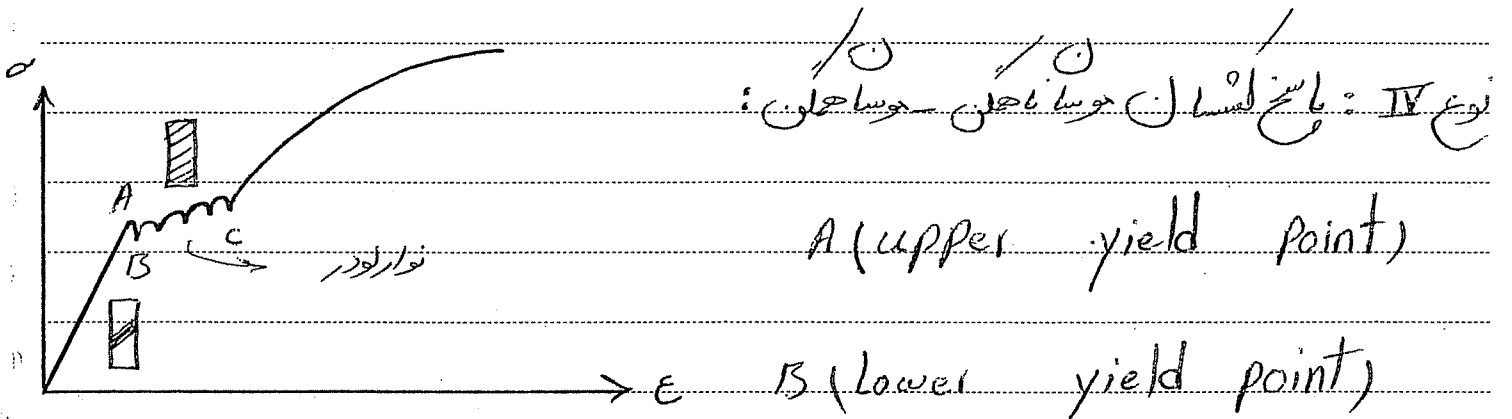 نوع IV : پاسخ کشسان مومسان ناهمگن - مومسان همگن :
A (upper yield point)
B (lower yield point)
σ
A
B
C
نوار لودر
ε